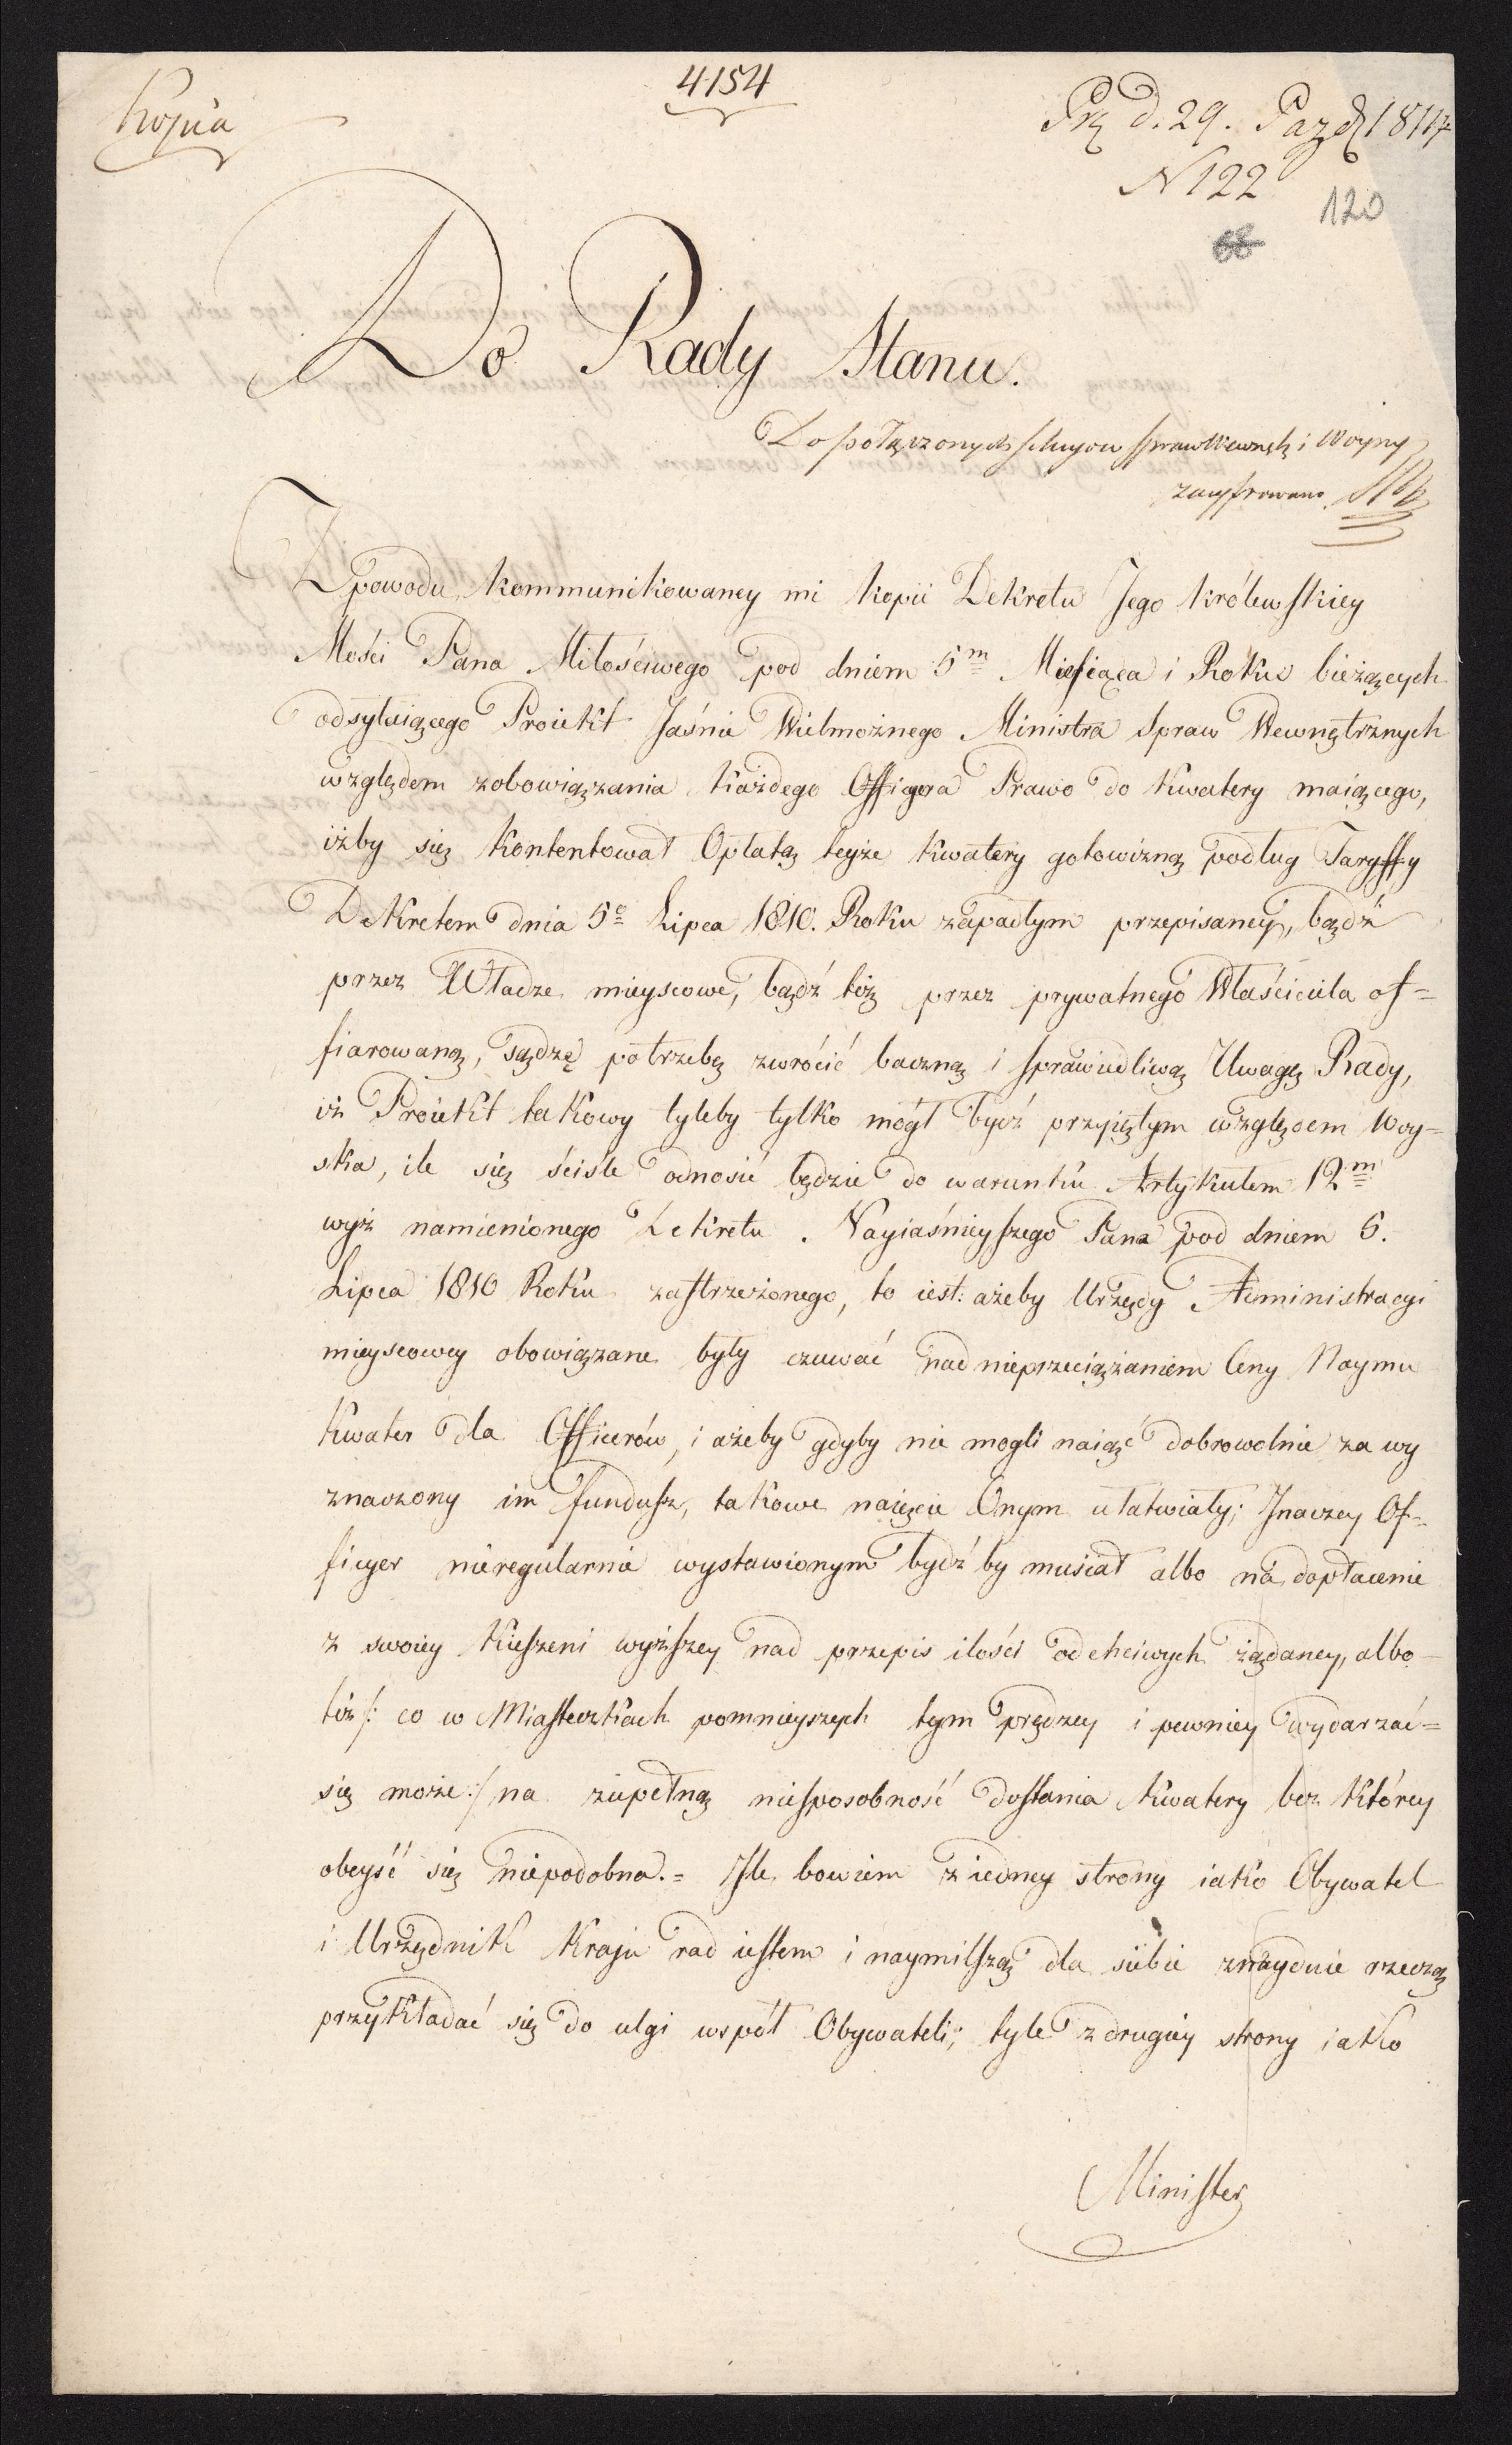 Kopia
4154
Prz d. 29. Pazd 1811
N 122
120
68
Do Rady Stanu.
Do połączonych sekcyow spraw Wewnętz i Woyny
zacyfrowano
Z powodu kommunikowaney mi kopii Dekretu Jego królewskiey
Mości Pana Miłościwego pod dniem 5m Miesiąca i Roku bieżących
odsyłaiącego Proiekt Jaśnie Wielmożnego Ministra Spraw Wewnętrznych
względem zobowiązania każdego Officyera Prawo do kwatery maiącego,
iżby się kontentował Opłatą teyże kwatery gotowizną podług Taryffy
Dekretem dnia 5o Lipca 1810. Roku zapadłym przepisaney, bądź
przez Władze mieyscowe, bądź też przez prywatnego Właściciela of=
fiarowaną, sądzę potrzebę zwrócić baczną i sprawiedliwą Uwagę Rady,
iż Proiekt takowy tyleby tylko mógł bydź przyiętym względem Woy=
ska, ile się ściśle odnosić będzie do warunku Artykułem 12m
wyż namienionego Dekretu . Nayiaśnieyszego Pana pod dniem 5.
Lipca 1810 Roku zastrzeżonego, to iest: ażeby Urzędy Administracyi
mieyscowey obowiązane były czuwać nad nieprzeciążaniem Ceny Naymu
Kwater dla Officerów, i ażeby gdyby nie mogli naiąć dobrowolnie za wy
znaczony im fundusz, takowe naięcie Onym ułatwiały; Inaczey Of=
ficyer nieregularnie wystawionym bydź by musiał albo na dopłacenie
z swoiey kieszeni wyższey nad przepis ilości od chciwych żądaney, albo
też /: co w Miasteczkach pomnieyszych tym prędzey i pewniey wydarzać=
się może :/ na zupełną niesposobność dostania kwatery bez którey
obeyść się niepodobna. = Ile bowiem z iedney strony iako Obywatel
i Urzędnik Kraju rad iestem i naymilszą dla siebie znayduie rzeczą
przykładać się do ulgi współ Obywateli; tyle z drugiey strony iako
Minister